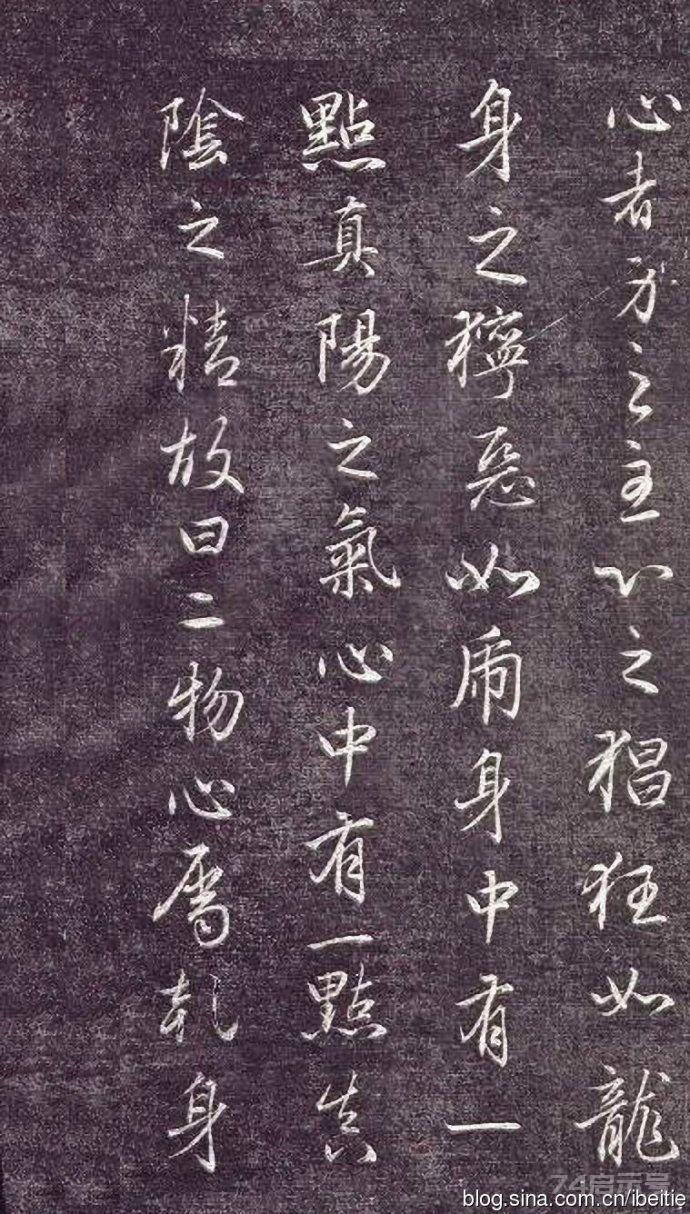 心者身之主心之猖狂如龍
身之獰惡如虎身中有一
點真陽之氣心中有一點真
陰之精故曰二物心属乾身
blog.sina.com.cn/ibeitie